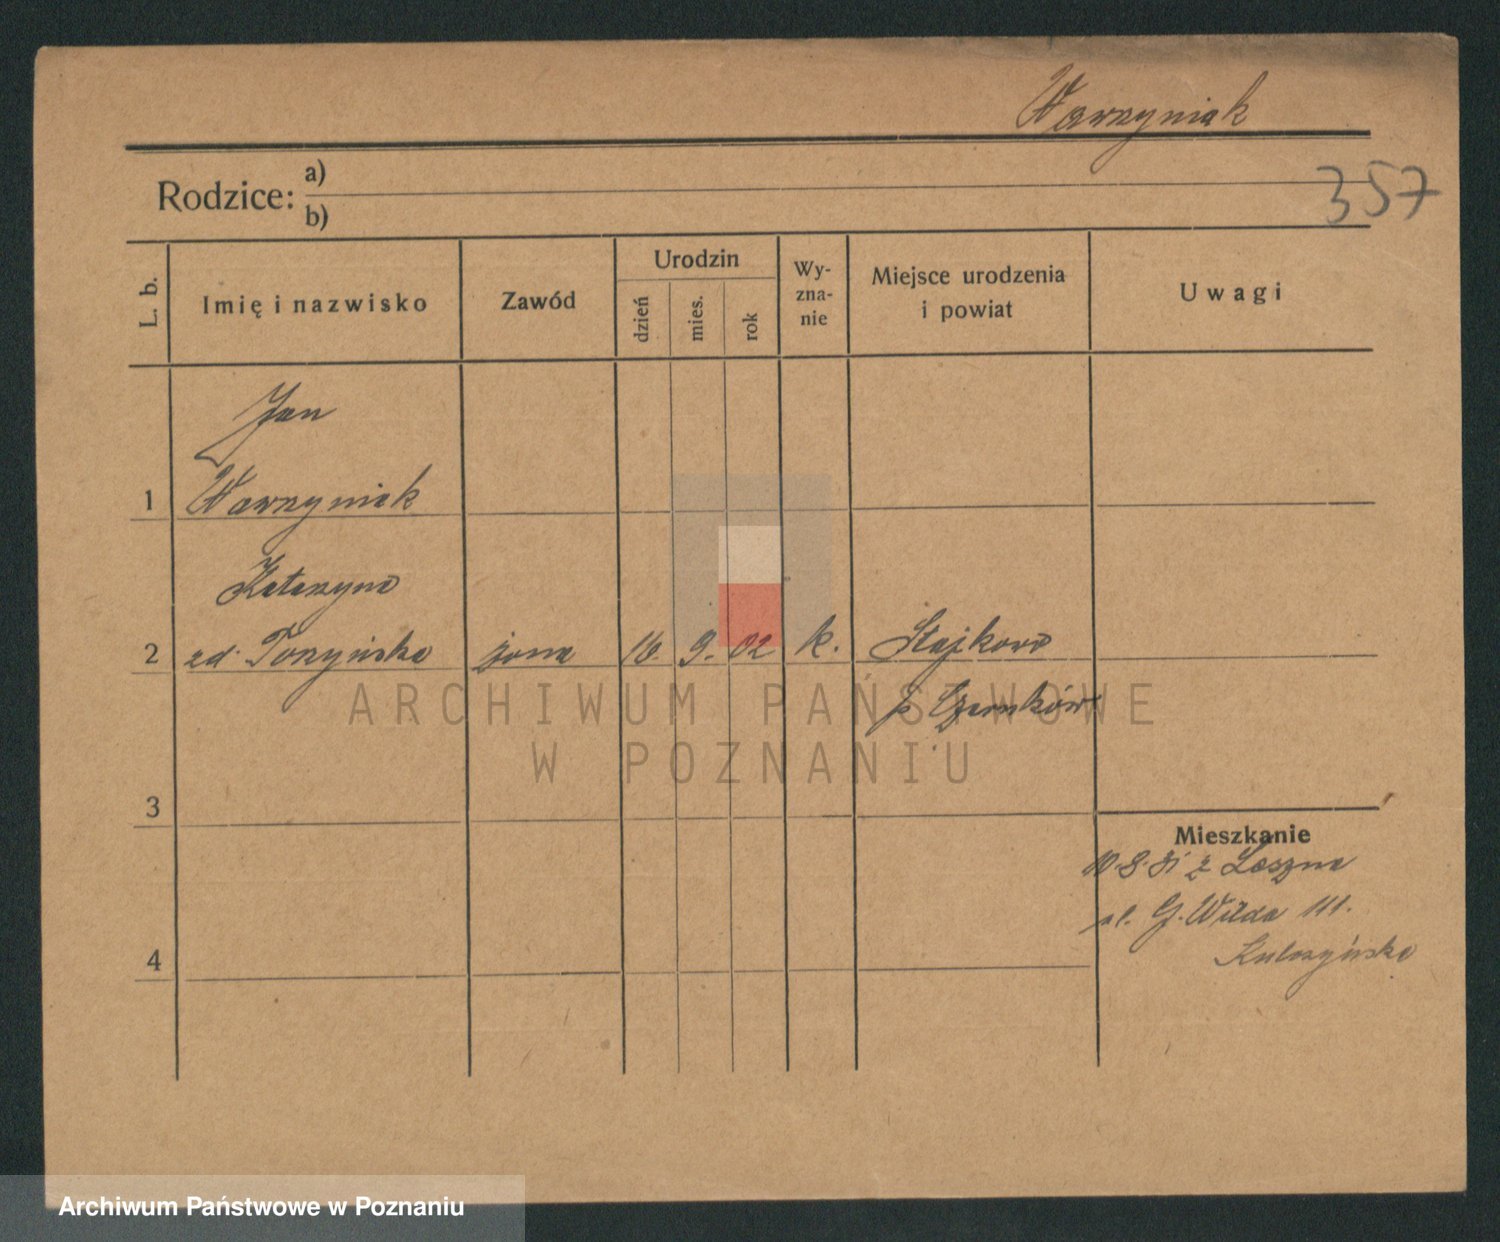 Wawrzyniak
Rodzice: a)
b)
357
L. b.
Imię i nazwisko
Zawód
Urodzin
dzień
mies.
rok
Wy-
zna-
nie
Miejsce urodzenia
i powiat
Uwagi
Jan
1 Wawrzyniak
Katarzyna
2 zd. żona 16. 9. 02 k. Stajkowo
p. Czarnków
3
Mieszkanie
10.8.31 z
ul. G. Wilda 111.
4
ARCHIWUM PAŃSTWOWE
W POZNANIU
Archiwum Państwowe w Poznaniu